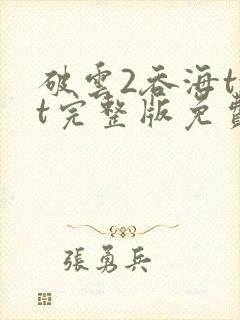 破雲2吞海t
t完整版免費
張勇兵